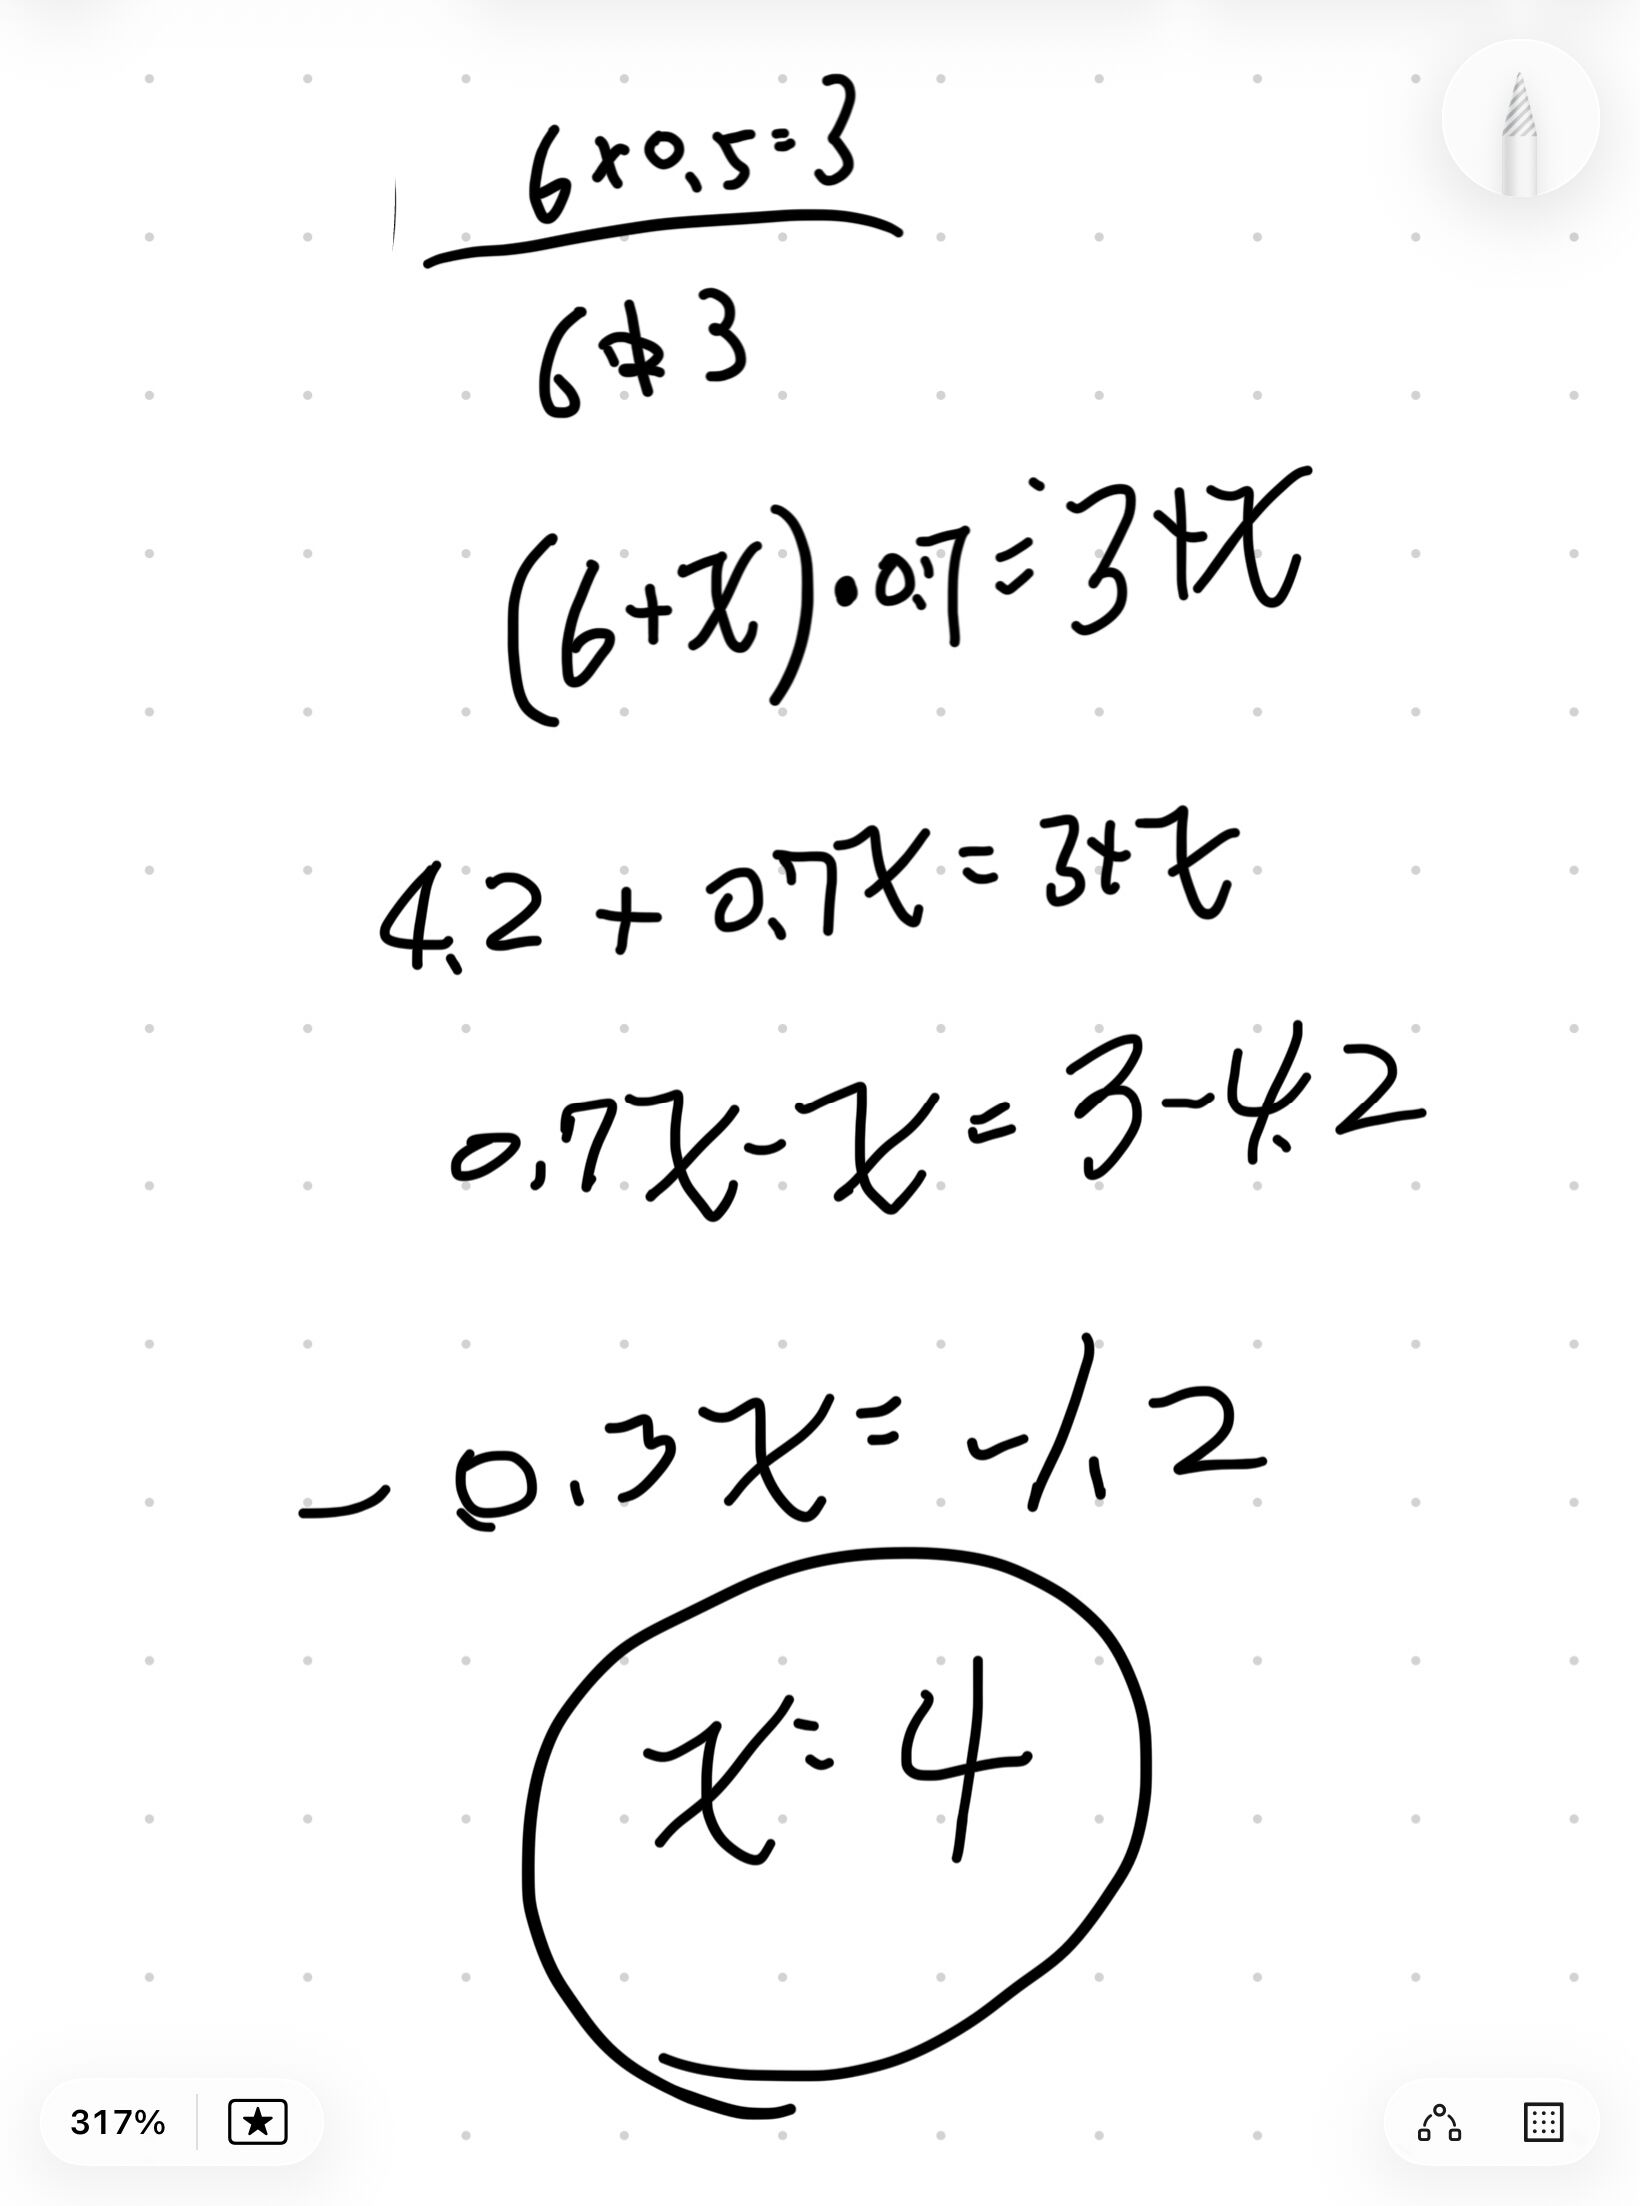 6×0,5=3
6 3
(6+x)•0,7=3+x
4,2 + 0,7x = 3+x
0,7x-x = 3-4,2
- 0,3x = -1,2
x = 4
317%